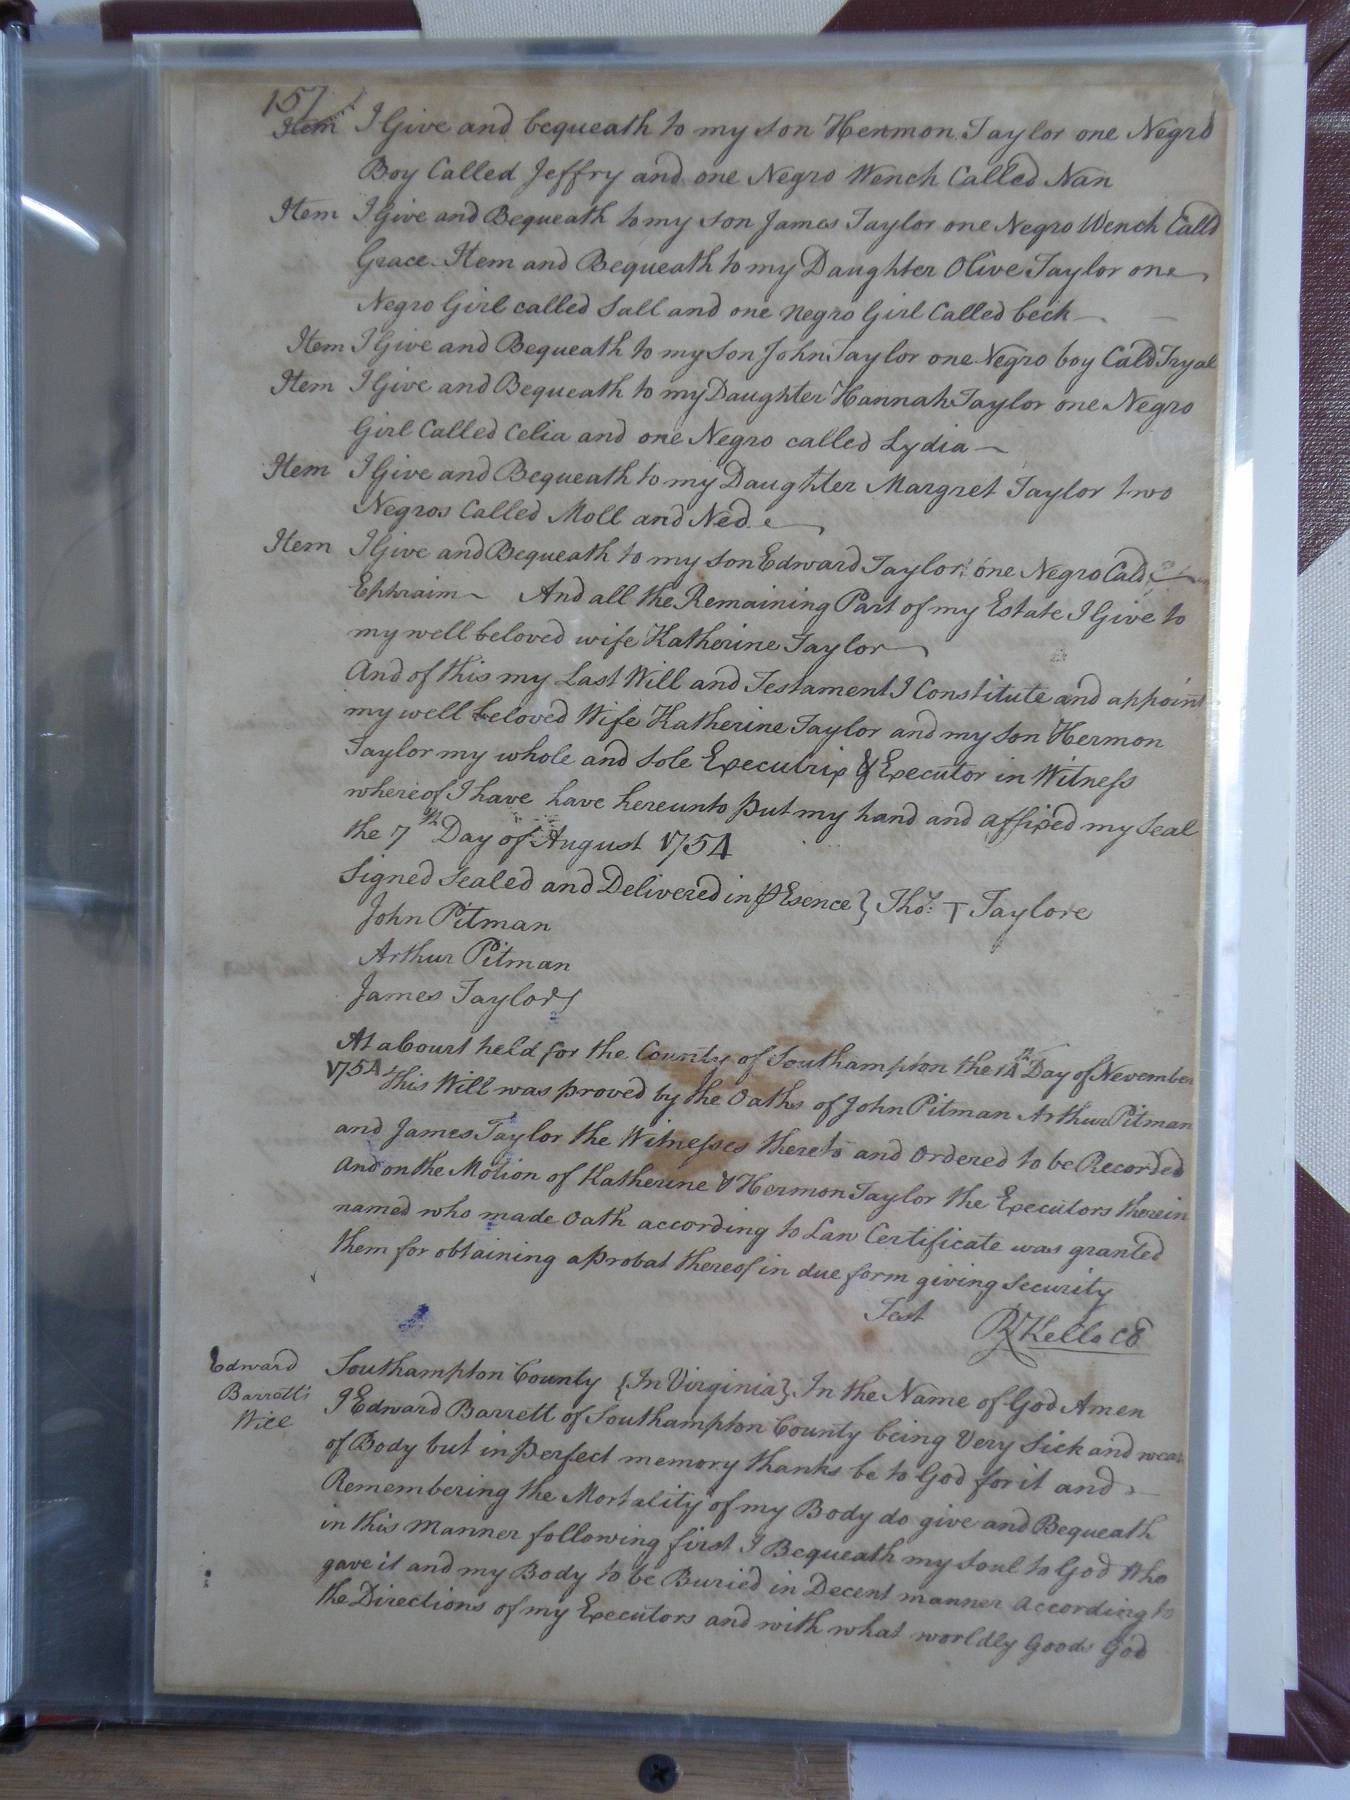 157
Item I Give and bequeath to my son Hermon Taylor one Negro
Boy Called Jeffry and one Negro Wench Called Nan
Item I Give and Bequeath to my son James Taylor one Negro Wench Calld
Grace. Item and Bequeath to my Daughter Olive Taylor one
Negro Girl called Sall and one negro Girl Called beck
Item I Give and Bequeath to my Son John Taylor one Negro boy Cald Tryal
Item I Give and Bequeath to my Daughter Hannah Taylor one Negro
Girl Called Celia and one Negro called Lydia
Item I Give and Bequeath to my Daughter Margret Taylor two
Negros Called Moll and Ned
Item I Give and Bequeath to my son Edward Taylor one Negro Cald
Ephraim And all the Remaining Part of my Estate I Give to
my well beloved wife Katherine Taylor
And of this my Last Will and Testament I Constitute and appoint
my well beloved Wife Katherine Taylor and my son Hermon
Taylor my whole and Sole Executrix & Executor in Witness
whereof I have have hereunto put my hand and affixed my Seal
the 7th Day of August 1754
Signed Sealed and Delivered in presence } Thos. T Taylore
John Pitman
Arthur Pitman
James Taylor
At a Court held for the County of Southampton the 14th Day of November
1754 this Will was proved by the Oaths of John Pitman Arthur Pitman
and James Taylor the Witnesses thereto and Ordered to be Recorded
And on the Motion of Katherine & Hermon Taylor the Executors therein
named who made Oath according to Law Certificate was granted
them for obtaining a probat thereof in due form giving Security
Test R Kello CC
Edward
Barrett's
Will
Southampton County {In Virginia} In the Name of God Amen
I Edward Barrett of Southampton County being Very Sick and weak
of Body but in perfect memory thanks be to God for it and
Remembering the Mortality of my Body do give and Bequeath
in this Manner following first I Bequeath my Soul to God Who
gave it and my Body to be Buried in Decent manner According to
the Directions of my Executors and with what worldly Goods God